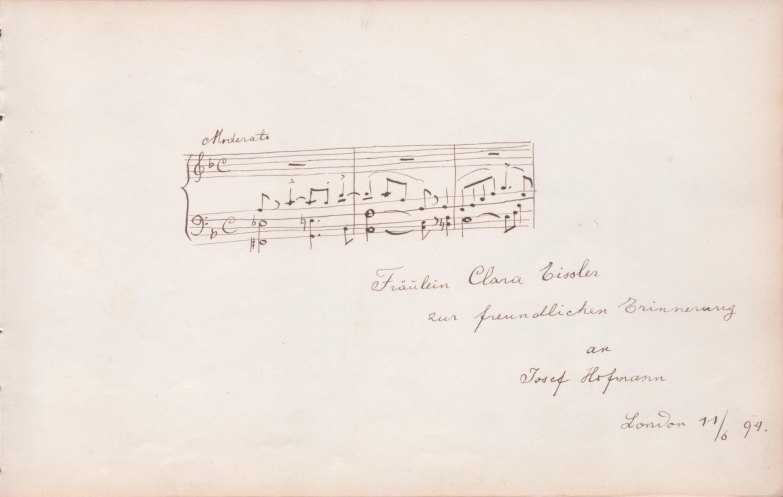 Moderato
Fräulein Clara Eissler
zur freundlichen Erinnerung
an
Josef Hofmann
London 11/6 94.